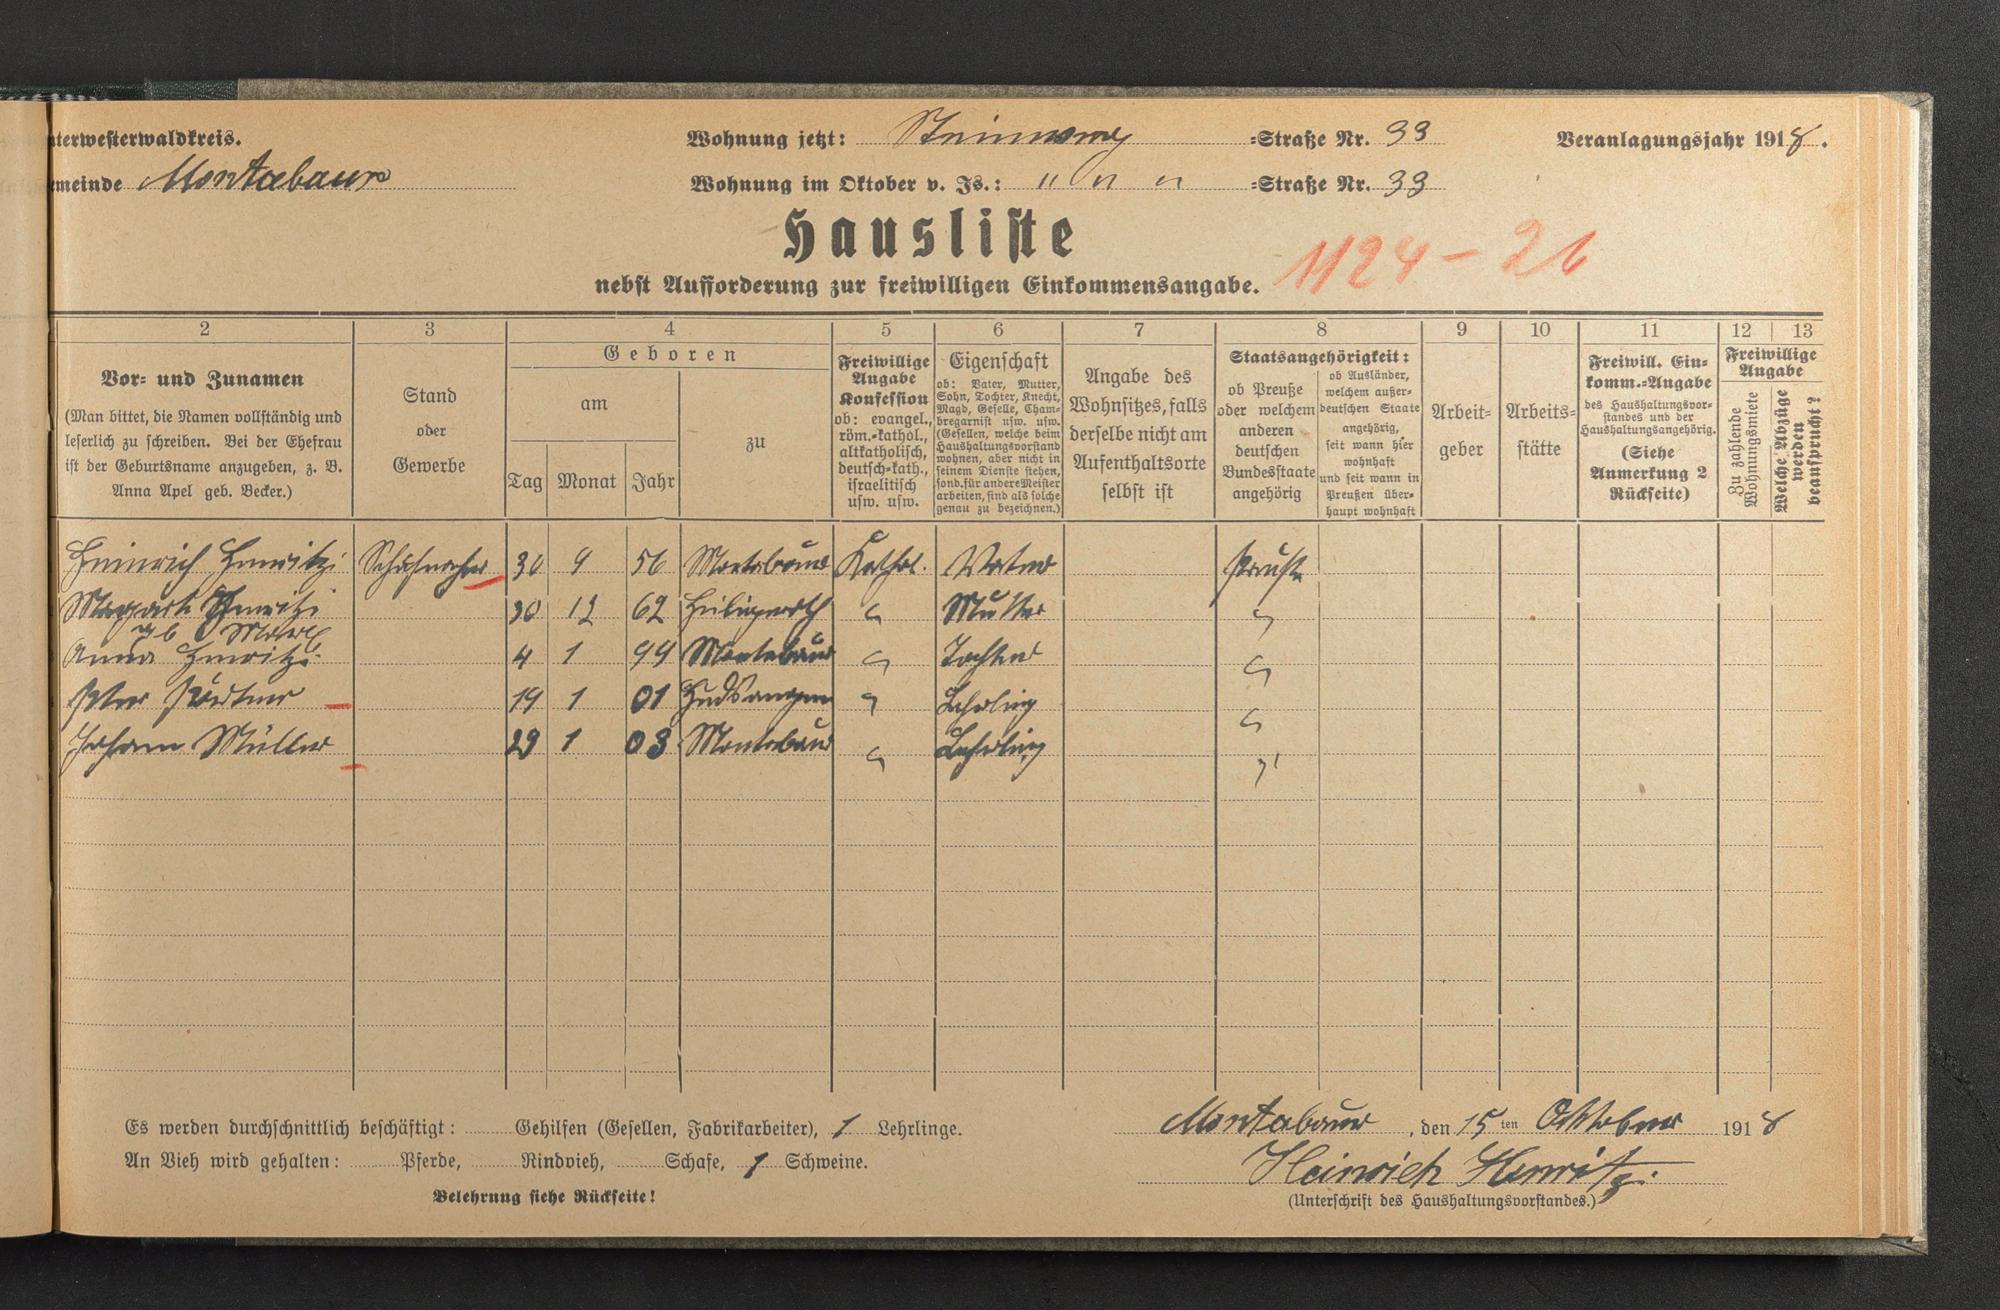 nterwesterwaldkreis.
Wohnung jetzt: Steinweg =Straße Nr. 33
Veranlagungsjahr 1918.
emeinde Montabaur
Wohnung im Oktober v. Js.: " " " =Straße Nr. 33
Hausliste
1124 - 26
nebst Aufforderung zur freiwilligen Einkommensangabe.
2 3 4 5 6 7 8 9 10 11 12 13
Vor= und Zunamen
(Man bittet, die Namen vollständig und
leserlich zu schreiben. Bei der Ehefrau
ist der Geburtsname anzugeben, z. B.
Anna Apel geb. Becker.)
Stand
oder
Gewerbe
Geboren
am
Tag Monat Jahr
zu
Freiwillige
Angabe
Konfession
ob: evangel.,
röm.=kathol.,
altkatholisch,
deutsch=kath.,
israelitisch
usw. usw.
Eigenschaft
ob: Vater, Mutter,
Sohn, Tochter, Knecht,
Magd, Geselle, Cham=
bregarnist usw. usw.
(Gesellen, welche beim
Haushaltungsvorstand
wohnen, aber nicht in
seinem Dienste stehen,
sond. für andere Meister
arbeiten, sind als solche
genau zu bezeichnen.)
Angabe des
Wohnsitzes, falls
derselbe nicht am
Aufenthaltsorte
selbst ist
Staatsangehörigkeit:
ob Preuße
oder welchem
anderen
deutschen
Bundesstaate
angehörig
ob Ausländer,
welchem außer=
deutschen Staate
angehörig,
seit wann hier
wohnhaft
und seit wann in
Preußen über=
haupt wohnhaft
Arbeit=
geber
Arbeits=
stätte
Freiwill. Ein=
komm.=Angabe
des Haushaltungsvor=
standes und der
Haushaltungsangehörig.
(Siehe
Anmerkung 2
Rückseite)
Freiwillige
Angabe
Zu zahlende
Wohnungsmiete
Welche Abzüge
werden
beansprucht?
Heinrich Henritzi 30 9 56 Montabaur Kathol. Vater Preuße
Henritzi 30 12 62 Heiligenroth " Mutter "
geb
Anna Henritzi 4 1 99 Montabaur " Tochter "
Peter 19 1 01 " Lehrling "
Johann Müller 29 1 03 Montabaur " Lehrling "
Es werden durchschnittlich beschäftigt: Gehilfen (Gesellen, Fabrikarbeiter), 1 Lehrlinge.
An Vieh wird gehalten: Pferde, Rindvieh, Schafe, 1 Schweine.
Belehrung siehe Rückseite!
Montabaur, den 15ten Oktober 1918
Heinrich Henritzi
(Unterschrift des Haushaltungsvorstandes.)